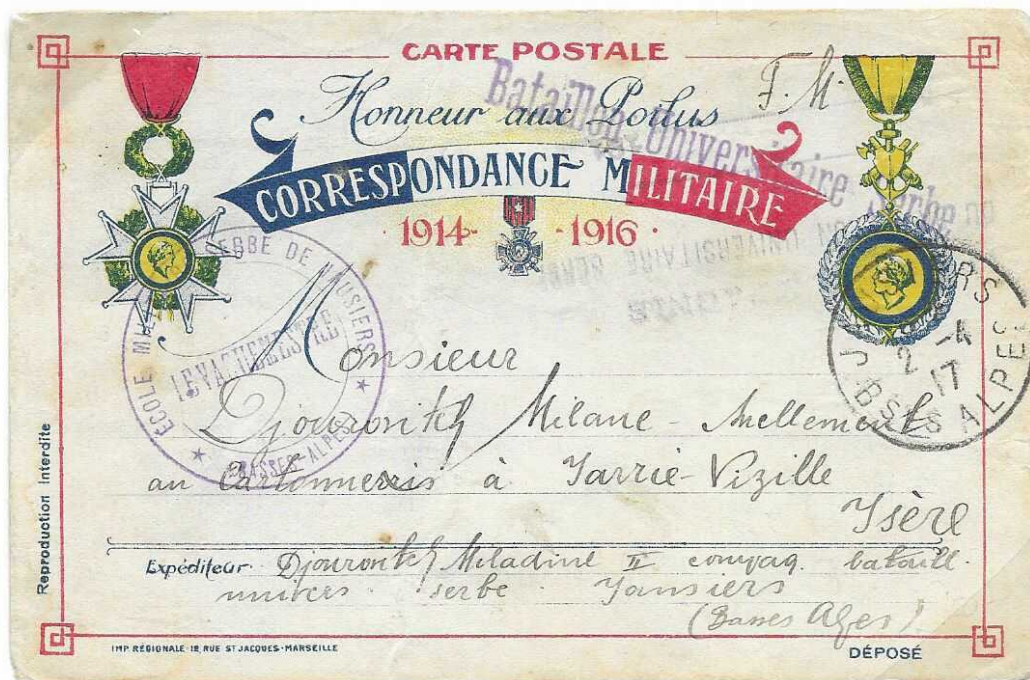 CARTE POSTALE
Honneur aux Poilus
F.M.
Bataillon Universitaire Serbe
CORRESPONDANCE MILITAIRE
1914-1916
UNIVERSITAIRE SERBE
ÉCOLE SERBE DE JAUSIERS
★ BASSES-ALPES ★
LE VAGUEMESTRE
RS
2 -4
17
BSES ALPES
Monsieur
Djourovitch Milane
au Cartonneris à Jarrie-Vizille
Isère
Expéditeur Djourovitch Miladine II compag. bataill.
univers. serbe Jausiers
(Basses Alpes)
Reproduction Interdite
IMP. RÉGIONALE-18, RUE ST JACQUES-MARSEILLE
DÉPOSÉ